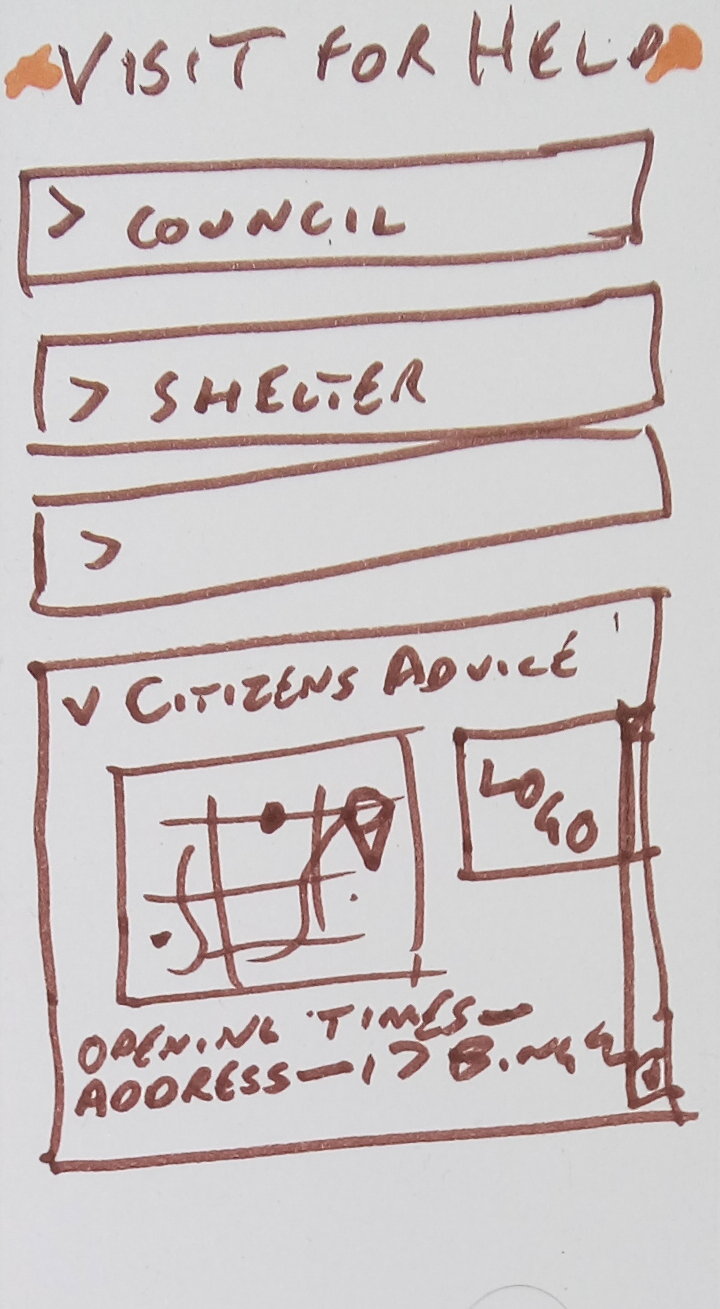 VISIT FOR HELP
> COUNCIL
> SHELTER
>
V CITIZENS ADVICE
LOGO
OPENING TIMES—
ADDRESS—17